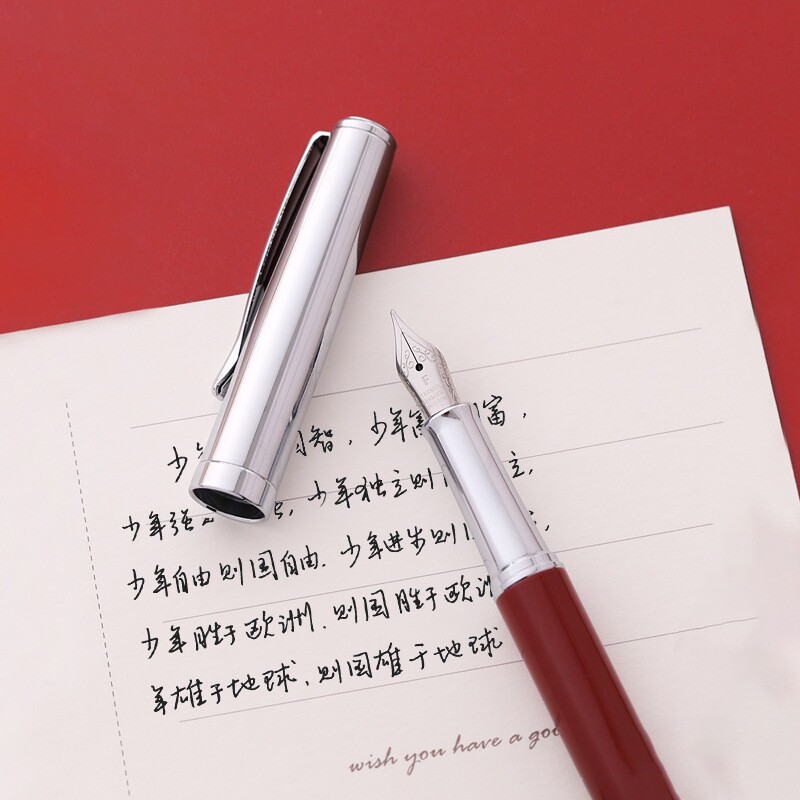 少年 智，少年富 富，
少年强 ，少年独立则 立，
少年自由则国自由．少年进步则
少年胜于欧洲．则国胜于欧洲
年雄于地球，则国雄于地球
wish you have a goo
F